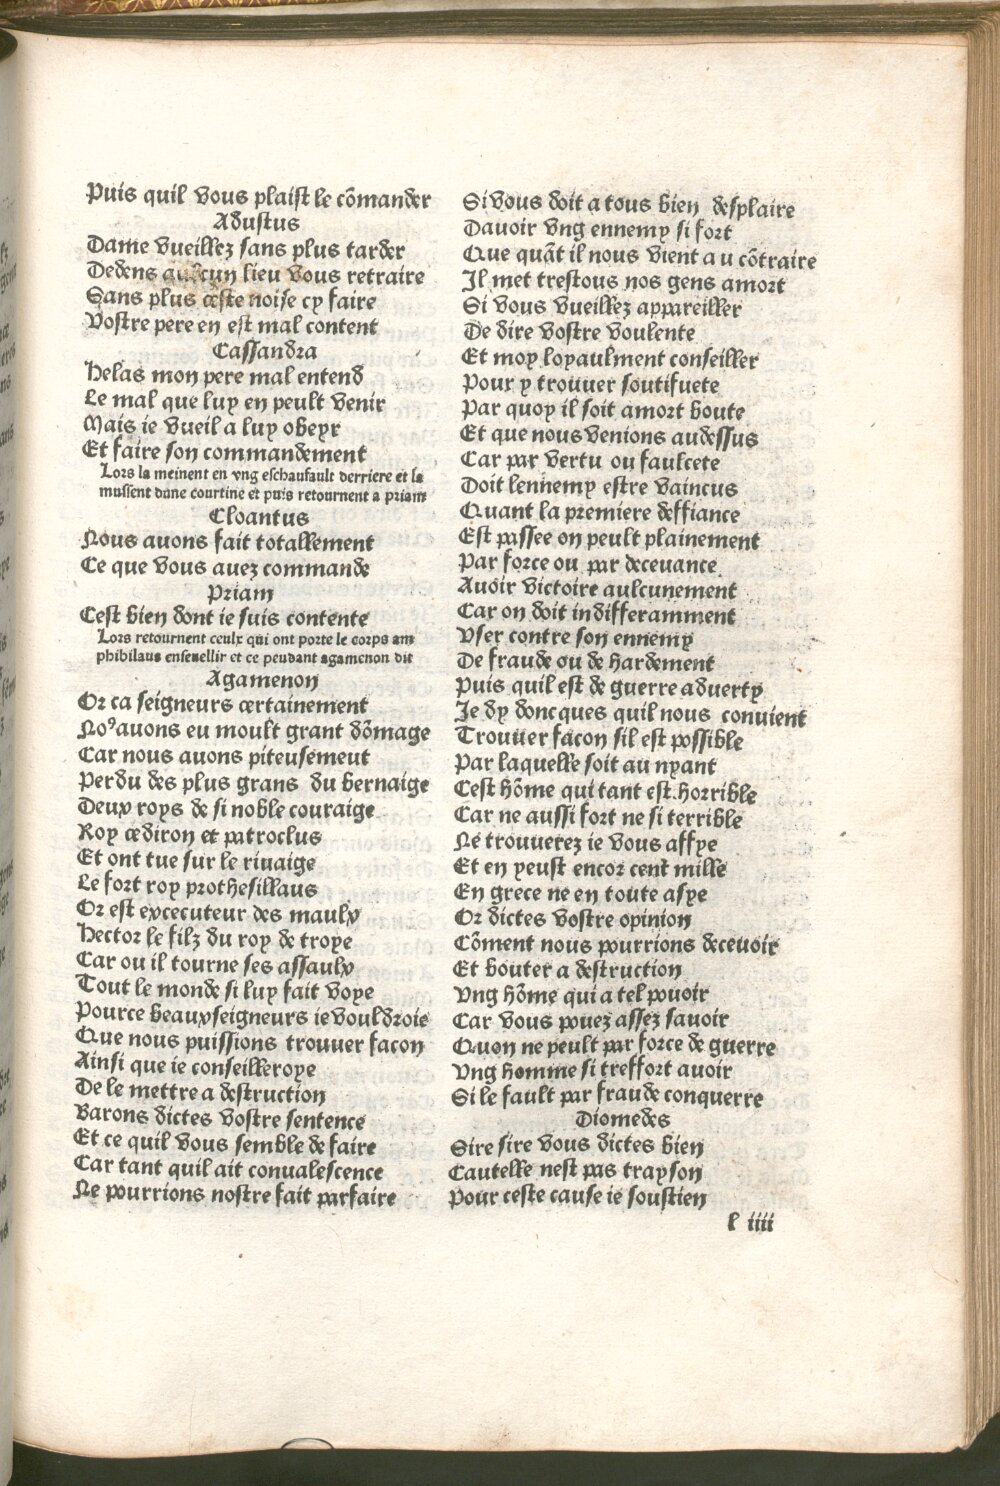 Puis quil vous plaist le cõmander
Adustus
Dame vueillez sans plus tarder
Dedens aulcun lieu vous retraire
Sans plus ceste noise cy faire
Vostre pere en est mal content
Cassandra
Helas mon pere mal entend
Le mal que luy en peult venir
Mais ie vueil a luy obeyr
Et faire son commandement
Lors la meinent en vng eschaufault derriere et la
mussent dune courtine et puis retournent a priam
Cloantus
Nous auons fait totallement
Ce que vous auez commande
Priam
Cest bien dont ie suis contente
Lors retournent ceulx qui ont porte le corps am
phibilaus enseuellir et ce pendant agamenon dit
Agamenon
Or ca seigneurs certainement
Noꝰ auons eu moult grant dõmage
Car nous auons piteusement
Perdu des plus grans du bernaige
Deux roys de si noble couraige
Roy cediron et patroclus
Et ont tue sur le riuaige
Le fort roy prothesillaus
Or est excecuteur des maulx
Hector le filz du roy de troye
Car ou il tourne ses assaulx
Tout le monde si luy fait voye
Pource beaux seigneurs ie vouldroie
Que nous puissions trouuer facon
Ainsi que ie conseilleroye
De le mettre a destruction
Barons dictes vostre sentence
Et ce quil vous semble de faire
Car tant quil ait conualescence
Ne pourrions nostre fait parfaire
Si vous doit a tous bien desplaire
Dauoir vng ennemy si fort
Que quãt il nous vient a u cõtraire
Il met trestous nos gens amort
Si vous vueillez appareiller
De dire vostre voulente
Et moy loyaulment conseiller
Pour y trouuer soutifuete
Par quoy il soit amort boute
Et que nous venions audessus
Car par vertu ou faulcete
Doit lennemy estre vaincus
Quant la premiere deffiance
Est passee on peult plainement
Par force ou par deceuance
Auoir victoire aulcunement
Car on doit indifferamment
Vser contre son ennemy
De fraude ou de hardement
Puis quil est de guerre aduerty
Je dy doncques quil nous conuient
Trouuer facon sil est possible
Par laquelle soit au nyant
Cest hõme qui tant est horrible
Car ne aussi fort ne si terrible
Ne trouuerez ie vous affye
Et en yeust encor cent mille
En grece ne en toute asye
Or dictes vostre opinion
Cõment nous pourrions deceuoir
Et bouter a destruction
Vng hõme qui a tel pouoir
Car vous pouez assez sauoir
Quon ne peult par force de guerre
Vng homme si treffort auoir
Si le fault par fraude conquerre
Diomedes
Sire sire vous dictes bien
Cautelle nest pas trayson
Pour ceste cause ie soustien
l iiii